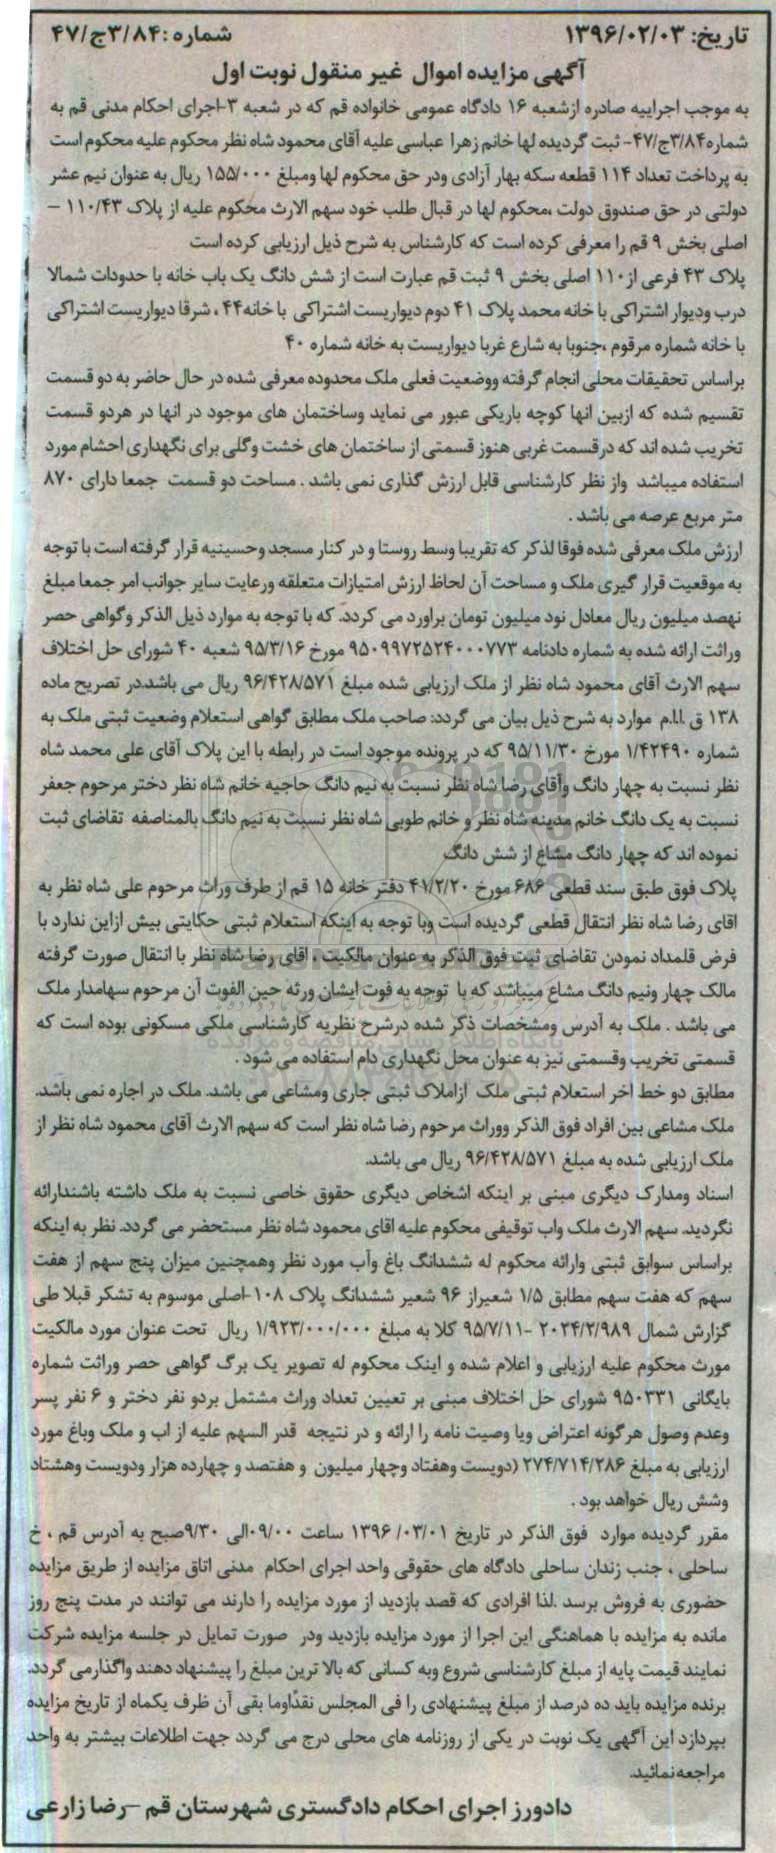 تاریخ: ۱۳۹۶/۰۲/۰۳
شماره: ۳/۸۴ج/۴۷
آگهی مزایده اموال غیر منقول نوبت اول
به موجب اجراییه صادره ازشعبه ۱۶ دادگاه عمومی خانواده قم که در شعبه ۳-اجرای احکام مدنی قم به
شماره۳/۸۴ج/۴۷- ثبت گردیده لها خانم زهرا عباسی علیه آقای محمود شاه نظر محکوم علیه محکوم است
به پرداخت تعداد ۱۱۴ قطعه سکه بهار آزادی ودر حق محکوم لها ومبلغ ۱۵۵/۰۰۰ ریال به عنوان نیم عشر
دولتی در حق صندوق دولت ،محکوم لها در قبال طلب خود سهم الارث محکوم علیه از پلاک ۱۱۰/۴۳ –
اصلی بخش ۹ قم را معرفی کرده است که کارشناس به شرح ذیل ارزیابی کرده است
پلاک ۴۳ فرعی از۱۱۰ اصلی بخش ۹ ثبت قم عبارت است از شش دانگ یک باب خانه با حدودات شمالا
درب ودیوار اشتراکی با خانه محمد پلاک ۴۱ دوم دیواریست اشتراکی با خانه۴۴ ، شرقا دیواریست اشتراکی
با خانه شماره مرقوم ،جنوبا به شارع غربا دیواریست به خانه شماره ۴۰
براساس تحقیقات محلی انجام گرفته ووضعیت فعلی ملک محدوده معرفی شده در حال حاضر به دو قسمت
تقسیم شده که ازبین انها کوچه باریکی عبور می نماید وساختمان های موجود در انها در هردو قسمت
تخریب شده اند که درقسمت غربی هنوز قسمتی از ساختمان های خشت وگلی برای نگهداری احشام مورد
استفاده میباشد واز نظر کارشناسی قابل ارزش گذاری نمی باشد . مساحت دو قسمت جمعا دارای ۸۷۰
متر مربع عرصه می باشد .
ارزش ملک معرفی شده فوقا لذکر که تقریبا وسط روستا و در کنار مسجد وحسینیه قرار گرفته است با توجه
به موقعیت قرار گیری ملک و مساحت آن لحاظ ارزش امتیازات متعلقه ورعایت سایر جوانب امر جمعا مبلغ
نهصد میلیون ریال معادل نود میلیون تومان براورد می کردد. که با توجه به موارد ذیل الذکر وگواهی حصر
وراثت ارائه شده به شماره دادنامه ۹۵۰۹۹۷۲۵۲۴۰۰۰۷۷۳ مورخ ۹۵/۳/۱۶ شعبه ۴۰ شورای حل اختلاف
سهم الارث آقای محمود شاه نظر از ملک ارزیابی شده مبلغ ۹۶/۴۲۸/۵۷۱ ریال می باشد.در تصریح ماده
۱۳۸ ق .ا.ا.م موارد به شرح ذیل بیان می گردد: صاحب ملک مطابق گواهی استعلام وضعیت ثبتی ملک به
شماره ۱/۴۲۴۹۰ مورخ ۹۵/۱۱/۳۰ که در پرونده موجود است در رابطه با این پلاک آقای علی محمد شاه
نظر نسبت به چهار دانگ وآقای رضا شاه نظر نسبت به نیم دانگ حاجیه خانم شاه نظر دختر مرحوم جعفر
نسبت به یک دانگ خانم مدینه شاه نظر و خانم طوبی شاه نظر نسبت به نیم دانگ بالمناصفه تقاضای ثبت
نموده اند که چهار دانگ مشاع از شش دانگ
پلاک فوق طبق سند قطعی ۶۸۶ مورخ ۴۱/۲/۲۰ دفتر خانه ۱۵ قم از طرف وراث مرحوم علی شاه نظر به
اقای رضا شاه نظر انتقال قطعی گردیده است وبا توجه به اینکه استعلام ثبتی حکایتی بیش ازاین ندارد با
فرض قلمداد نمودن تقاضای ثبت فوق الذکر به عنوان مالکیت ، اقای رضا شاه نظر با انتقال صورت گرفته
مالک چهار ونیم دانگ مشاع میباشد که با توجه به فوت ایشان ورثه حین الفوت آن مرحوم سهامدار ملک
می باشد . ملک به آدرس ومشخصات ذکر شده درشرح نظریه کارشناسی ملکی مسکونی بوده است که
قسمتی تخریب وقسمتی نیز به عنوان محل نگهداری دام استفاده می شود .
مطابق دو خط اخر استعلام ثبتی ملک ازاملاک ثبتی جاری ومشاعی می باشد. ملک در اجاره نمی باشد.
ملک مشاعی بین افراد فوق الذکر ووراث مرحوم رضا شاه نظر است که سهم الارث آقای محمود شاه نظر از
ملک ارزیابی شده به مبلغ ۹۶/۴۲۸/۵۷۱ ریال می باشد.
اسناد ومدارک دیگری مبنی بر اینکه اشخاص دیگری حقوق خاصی نسبت به ملک داشته باشندارائه
نگردید. سهم الارث ملک واب توقیفی محکوم علیه اقای محمود شاه نظر مستحضر می گردد. نظر به اینکه
براساس سوابق ثبتی وارائه محکوم له ششدانگ باغ وآب مورد نظر وهمچنین میزان پنج سهم از هفت
سهم که هفت سهم مطابق ۱/۵ شعیراز ۹۶ شعیر ششدانگ پلاک ۱۰۸-اصلی موسوم به تشکر قبلا طی
گزارش شمال ۲۰۲۴/۲/۹۸۹ -۹۵/۷/۱۱ کلا به مبلغ ۱/۹۲۳/۰۰۰/۰۰۰ ریال تحت عنوان مورد مالکیت
مورث محکوم علیه ارزیابی و اعلام شده و اینک محکوم له تصویر یک برگ گواهی حصر وراثت شماره
بایگانی ۹۵۰۳۳۱ شورای حل اختلاف مبنی بر تعیین تعداد وراث مشتمل بردو نفر دختر و ۶ نفر پسر
وعدم وصول هرگونه اعتراض ویا وصیت نامه را ارائه و در نتیجه قدر السهم علیه از اب و ملک وباغ مورد
ارزیابی به مبلغ ۲۷۴/۷۱۴/۲۸۶ (دویست وهفتاد وچهار میلیون و هفتصد و چهارده هزار ودویست وهشتاد
وشش ریال خواهد بود .
مقرر گردیده موارد فوق الذکر در تاریخ ۰۳/۰۱/ ۱۳۹۶ ساعت ۰۹/۰۰الی ۹/۳۰صبح به آدرس قم ، خ
ساحلی ، جنب زندان ساحلی دادگاه های حقوقی واحد اجرای احکام مدنی اتاق مزایده از طریق مزایده
حضوری به فروش برسد .لذا افرادی که قصد بازدید از مورد مزایده را دارند می توانند در مدت پنج روز
مانده به مزایده با هماهنگی این اجرا از مورد مزایده بازدید ودر صورت تمایل در جلسه مزایده شرکت
نمایند قیمت پایه از مبلغ کارشناسی شروع وبه کسانی که بالا ترین مبلغ را پیشنهاد دهند واگذارمی گردد.
برنده مزایده باید ده درصد از مبلغ پیشنهادی را فی المجلس نقدًاوما بقی آن ظرف یکماه از تاریخ مزایده
بپردازد این آگهی یک نوبت در یکی از روزنامه های محلی درج می گردد جهت اطلاعات بیشتر به واحد
مراجعه نمائید.
دادورز اجرای احکام دادگستری شهرستان قم –رضا زارعی